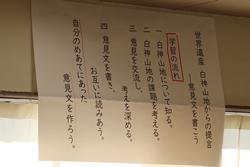 世界遺産 白神山地からの提言
―意見文を書こう
学習の流れ
一 白神山地について知る。
二 白神山地の課題を考える。
三 意見を交流し、
考えを深める。
四 意見文を書き、
お互いに読みあう。
自分のめあてにあった
意見文を作ろう。